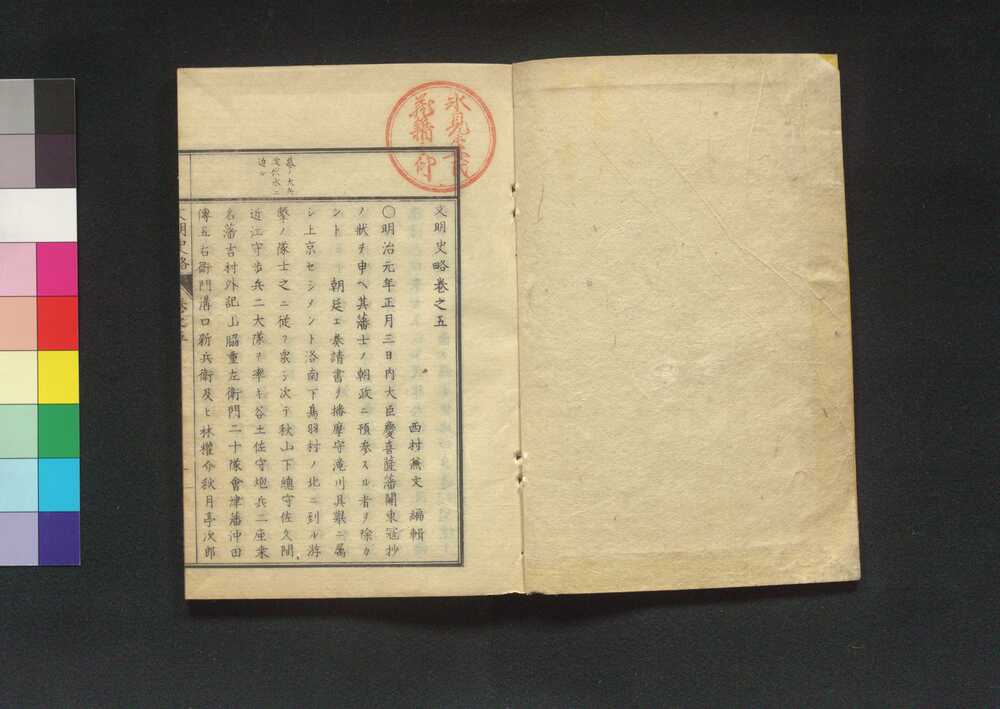 文明史略卷之五
西村兼文 編輯
〇明治元年正月三日内大臣慶喜薩藩關東冦抄
ノ狀ヲ申ヘ其藩士ノ朝政ニ預參スル者ヲ除カ
ント 朝廷エ奏請書ヲ播摩守滝川具擧ニ属
シ上京セシメント洛南下鳥羽村ノ北ニ到ル游
擊ノ隊士之ニ從フ衆シ次テ秋山下總守佐久間
近江守歩兵二大隊ヲ率キ谷土佐守炮兵二座来
名藩吉村外記山脇重左衛門二十隊會津藩沖田
傳五右衛門溝口新兵衛及ヒ林權介秋月亭次郎
幕ノ大兵
伏水ニ
迫ル
文明史略 卷之五